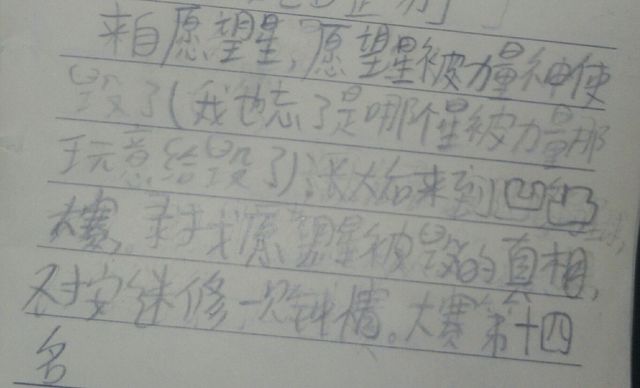 来自愿望星,愿望星被力量神使
毁了(我也忘了是哪个星被力量那
玩意给毁了)长大后来到凹凸
大赛,寻找愿望星被毁的真相,
对安迷修一见钟情。大赛第十四
名